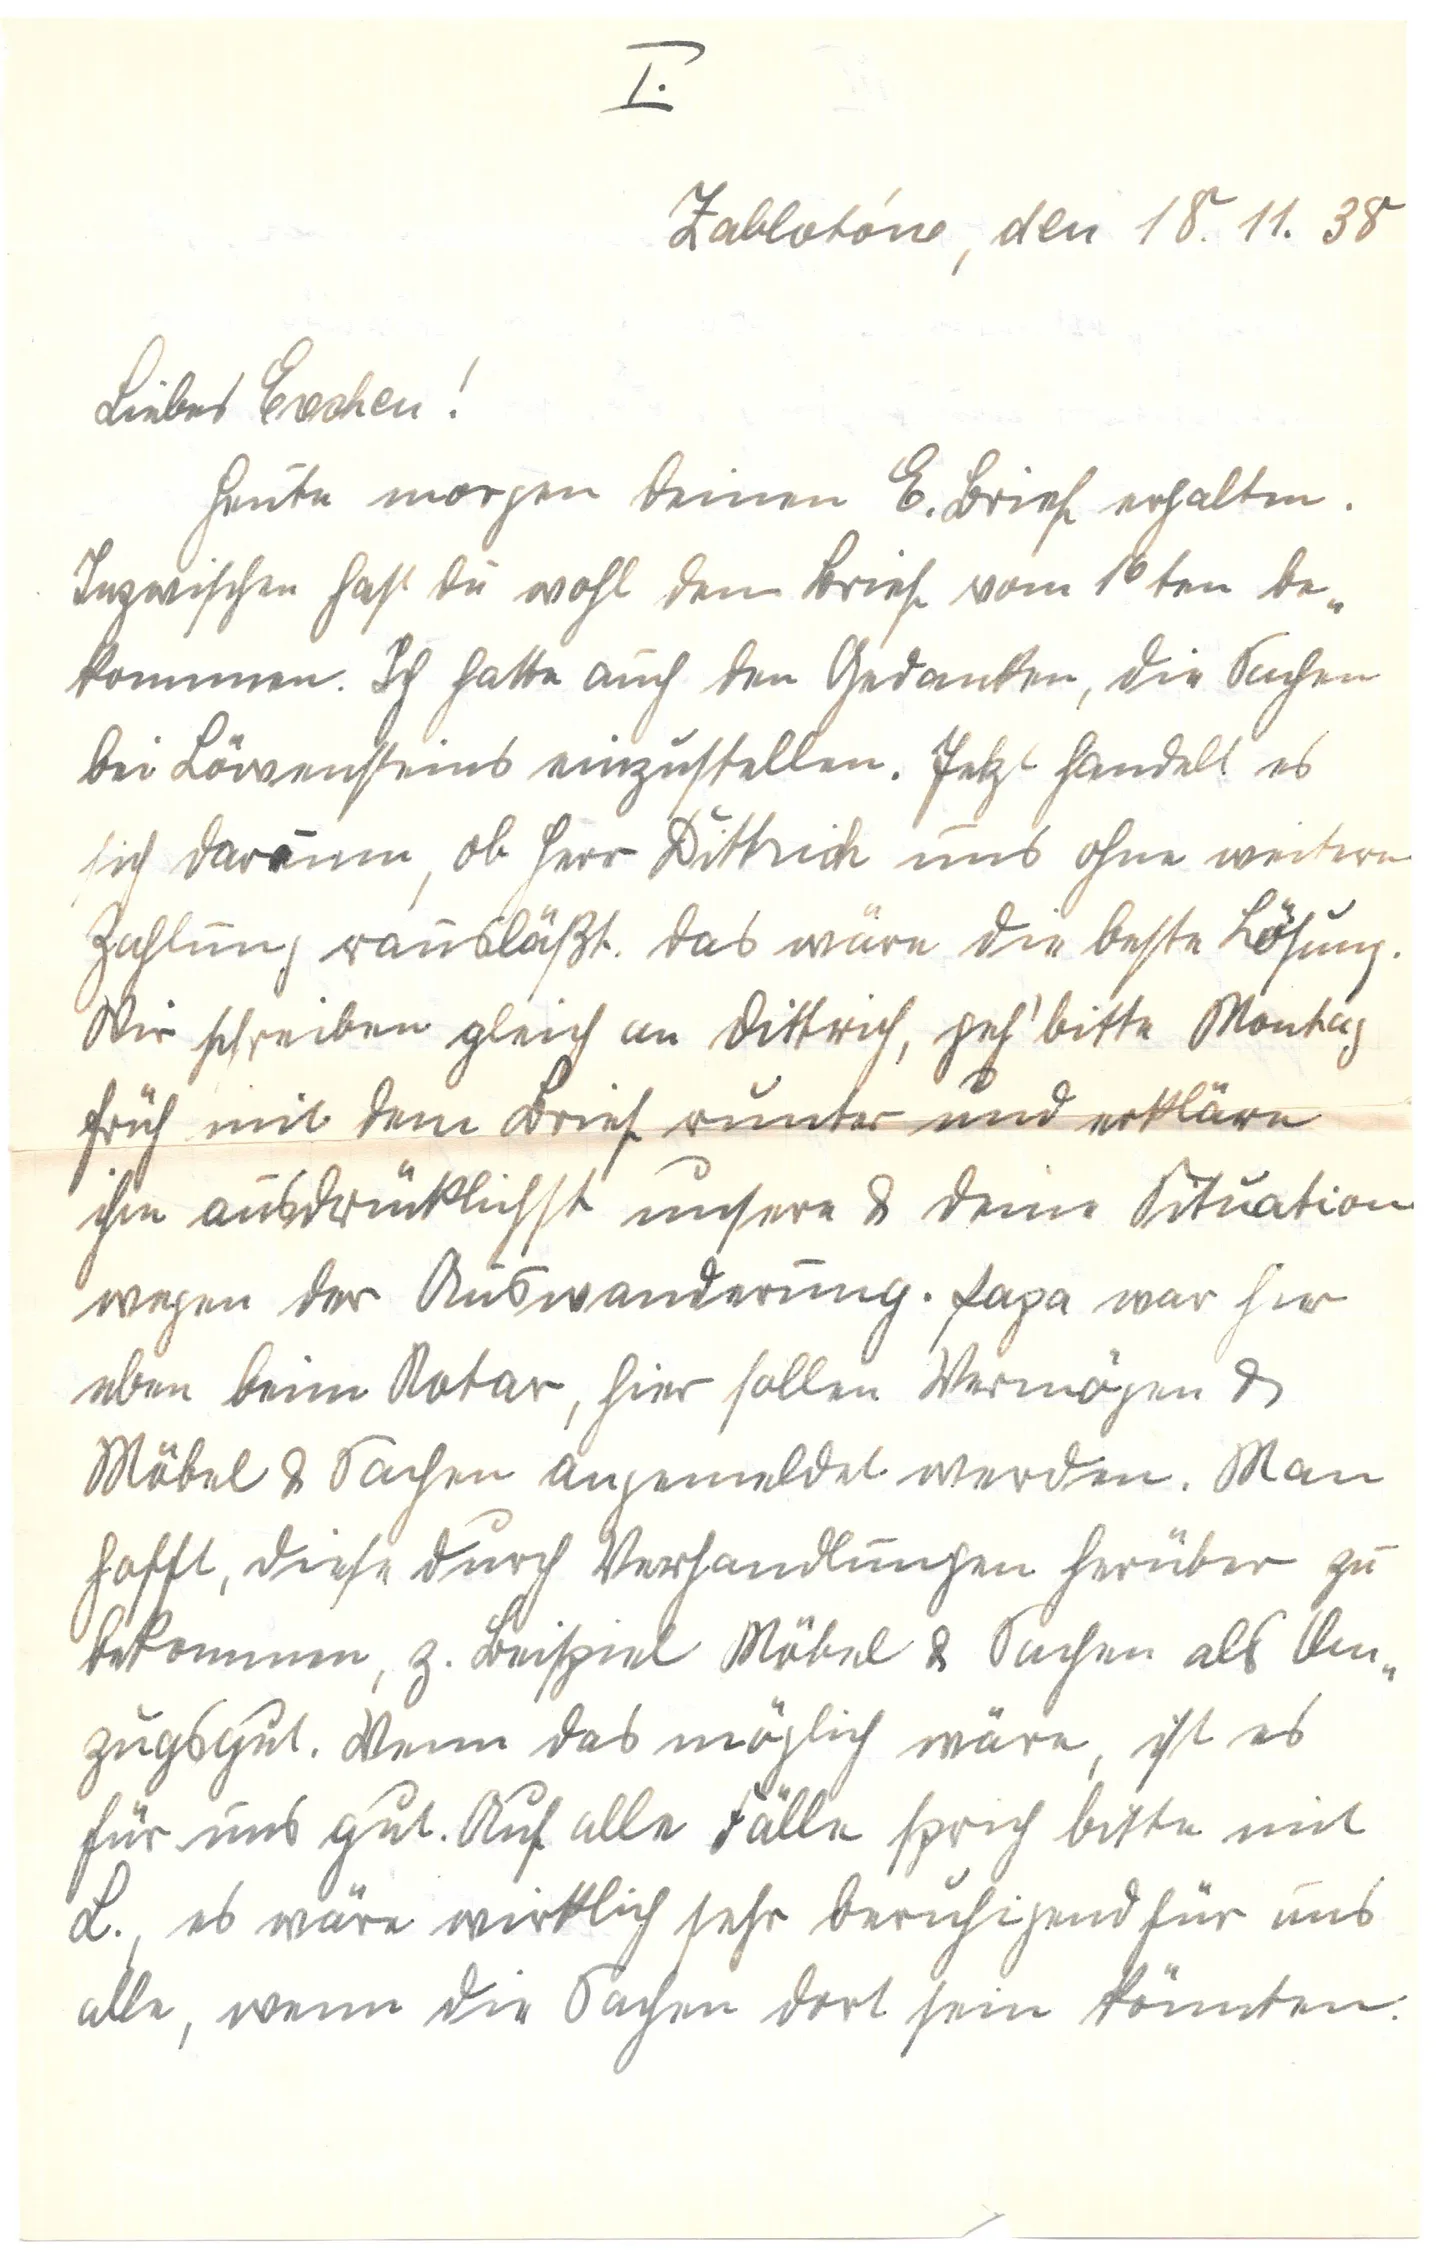 I.
Zablotów, den 18. 11. 38
Liebes Evchen!
Heute morgen deinen E. Brief erhalten.
Inzwischen hast du wohl den Brief vom 16ten be„
kommen. Ich hatte auch den Gedanken, die Sachen
bei Löwensteins einzustellen. Jetzt handelt es
sich darum, ob Herr Dittrich uns ohne weitere
Zahlung rausläßt. das wäre die beste Lösung.
Wir schreiben gleich an Dittrich, geh' bitte Montag
früh mit dem Brief runter und erkläre
ihm ausdrücklichst unsere & deine Situation
wegen der Auswanderung. Papa war hier
eben beim Notar, hier sollen Vermögen &
Möbel & Sachen angemeldet werden. Man
hofft, diese durch Verhandlungen herüber zu
bekommen, z. Beispiel Möbel & Sachen als Um„
zugsgut. Wenn das möglich wäre, ist es
für uns gut. Auf alle Fälle sprich bitte mit
L., es wäre wirklich sehr beruhigend für uns
alle, wenn die Sachen dort sein könnten.